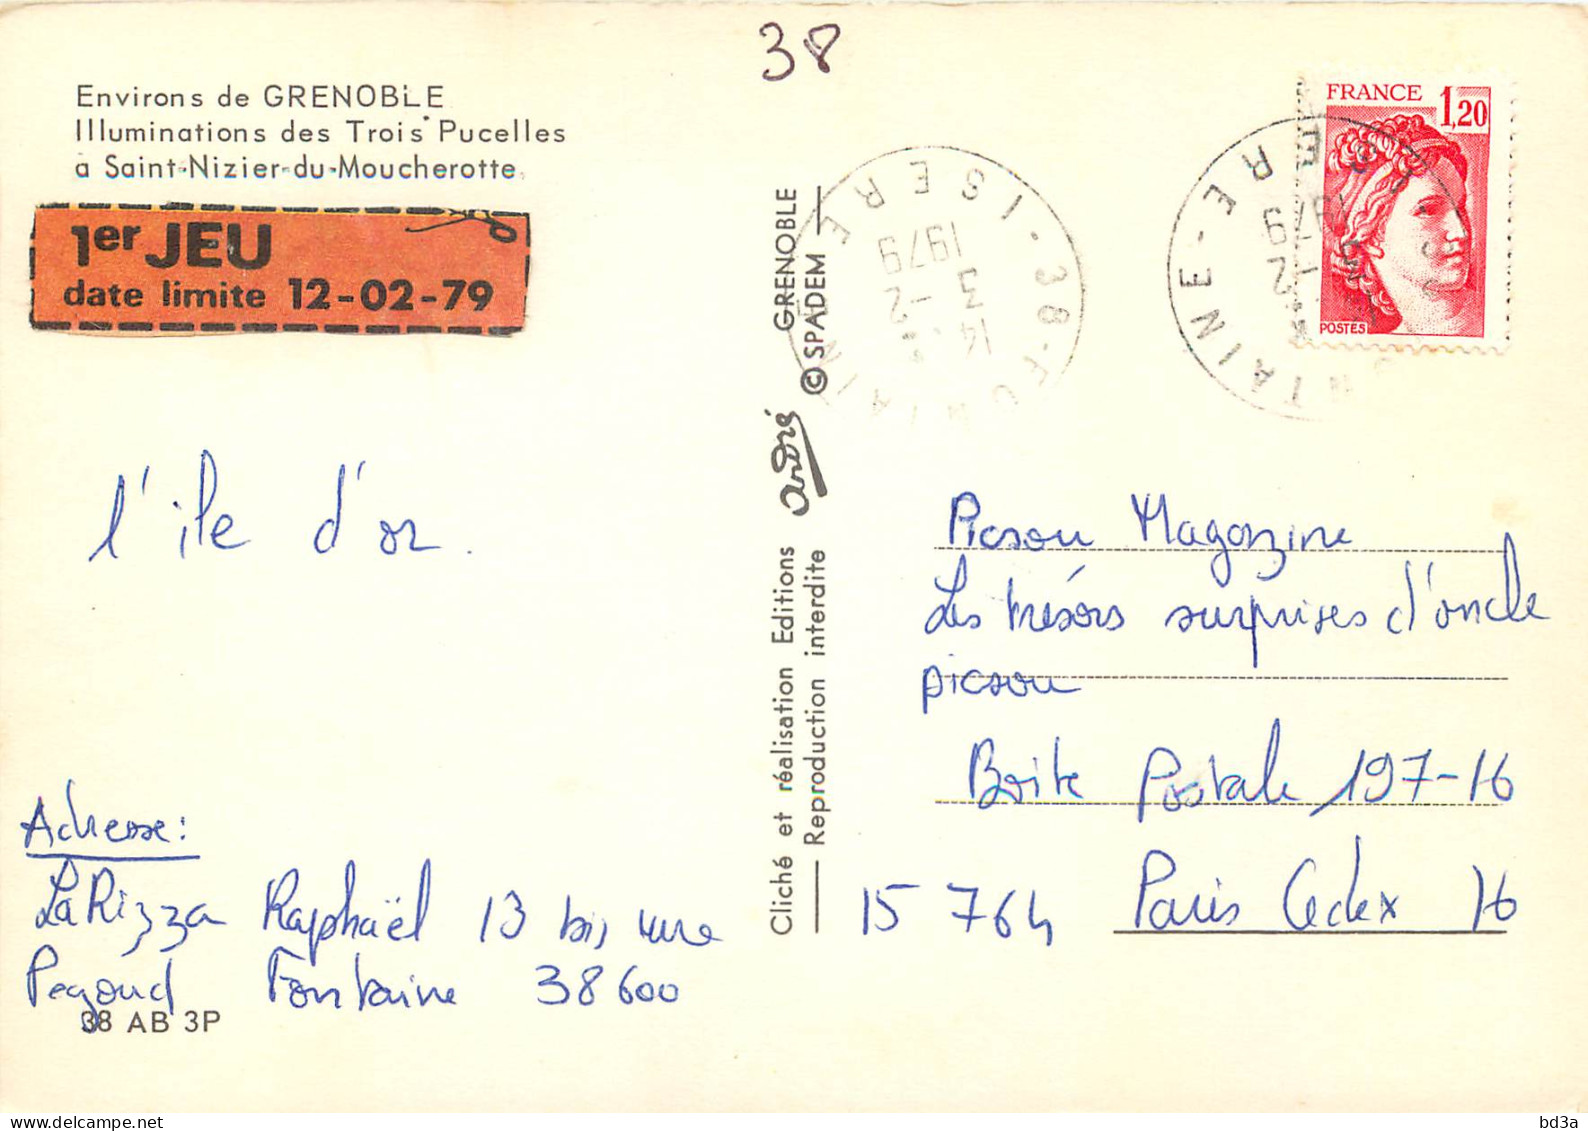 38
Environs de GRENOBLE
Illuminations des Trois Pucelles
à Saint-Nizier-du-Moucherotte
1er JEU
date limite 12-02-79
l'ile d'or.
Adresse:
LaRizza Raphaël 13 bis rue
Pegoud Fontaine 38600
38 AB 3P
Cliché et réalisation Editions André GRENOBLE
Reproduction interdite © SPADEM
38-FONTAINE - ISERE
14
3 -2
1979
FRANCE 1,20
POSTES
TAINE - ERE
-2
1979
Picsou Magazine
Les trésors surprises d'oncle
picsou
Boite Postale 197-16
15 764 Paris Cedex 16
bd3a